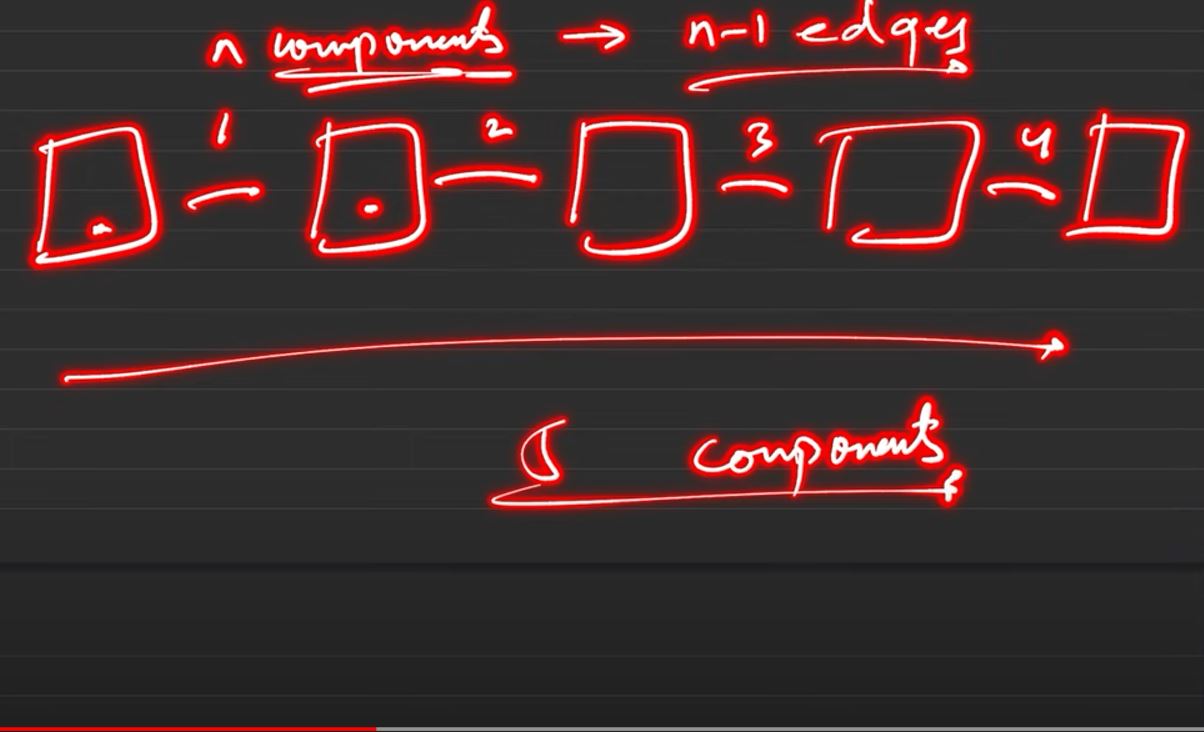 n components → n-1 edges
1 2 3 4
5 components